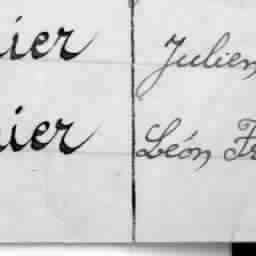 ier Julien
ier León Fr